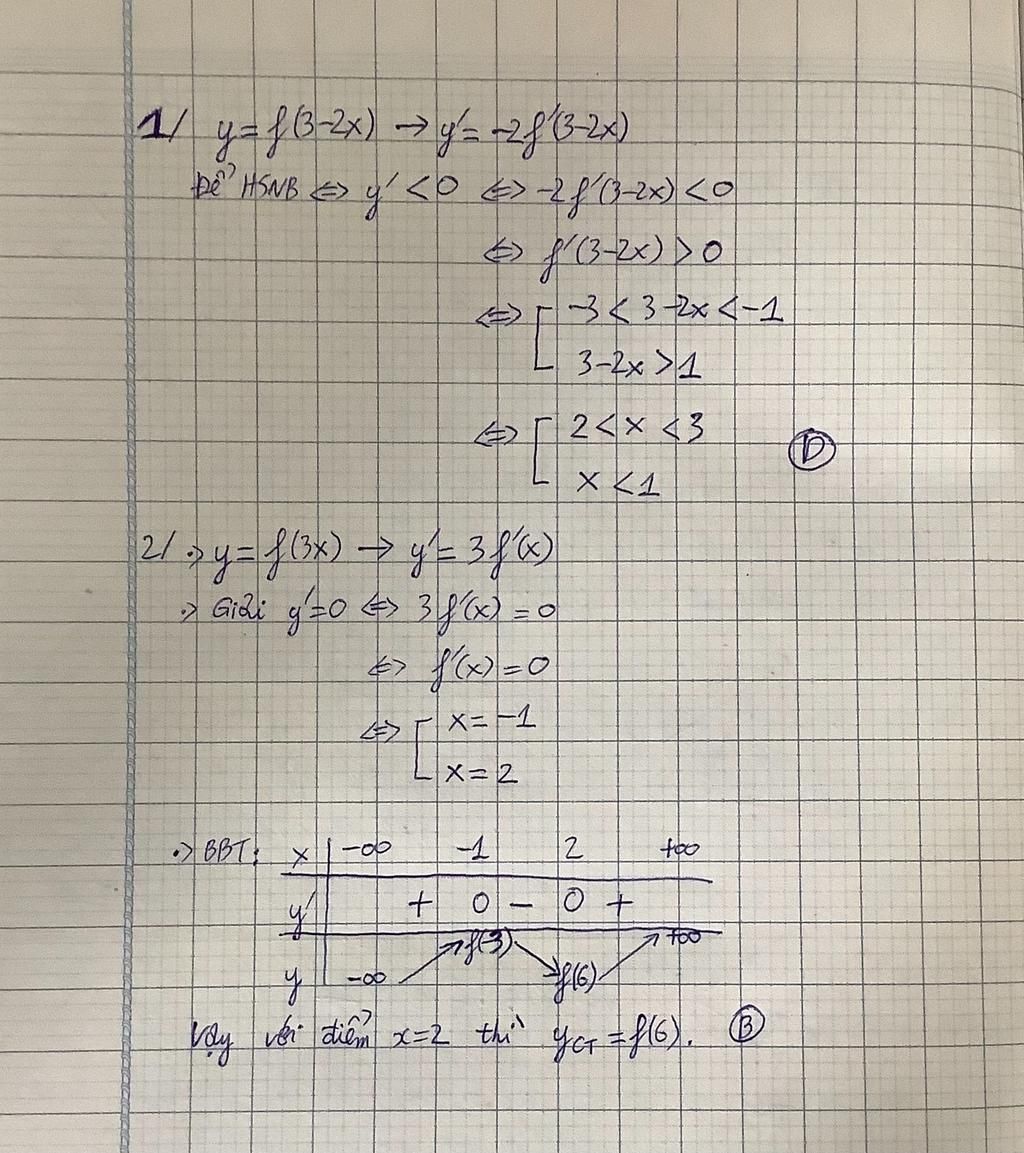 1/ y = f(3-2x) → y' = -2f'(3-2x)
Để HSNB ⇔ y' < 0 ⇔ -2f'(3-2x) < 0
⇔ f'(3-2x) > 0
⇔ [ -3 < 3-2x < -1
3-2x > 1
⇔ [ 2 < x < 3
x < 1
D
2/ •> y = f(3x) → y' = 3f'(x)
•> Giải y' = 0 ⇔ 3f'(x) = 0
⇔ f'(x) = 0
⇔ [ x = -1
x = 2
•> BBT: x | -∞ -1 2 +∞
y' + 0 - 0 +
f(-3) +∞
y -∞ f(6)
Vậy với điểm x=2 thì yCT = f(6). B